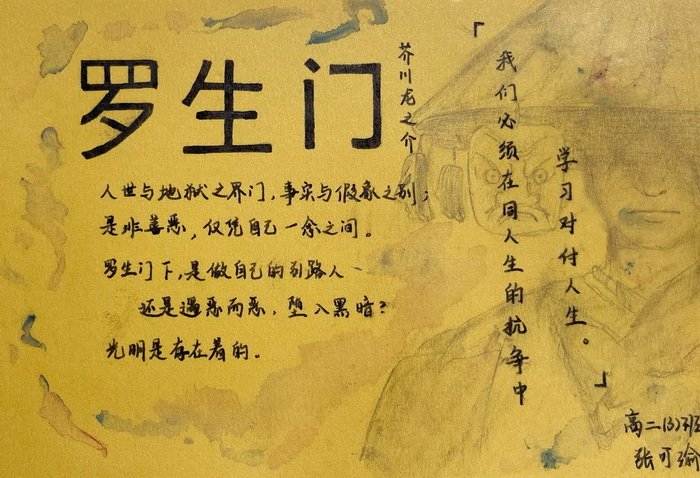 罗生门
芥川龙之介
人世与地狱之界门，事实与假象之别；
是非善恶，仅凭自己一念之间。
罗生门下，是做自己的引路人
还是遇恶而恶，堕入黑暗？
光明是存在着的。
「我们必须在同人生的抗争中
学习对付人生。」
高二(3)班
张可瑜